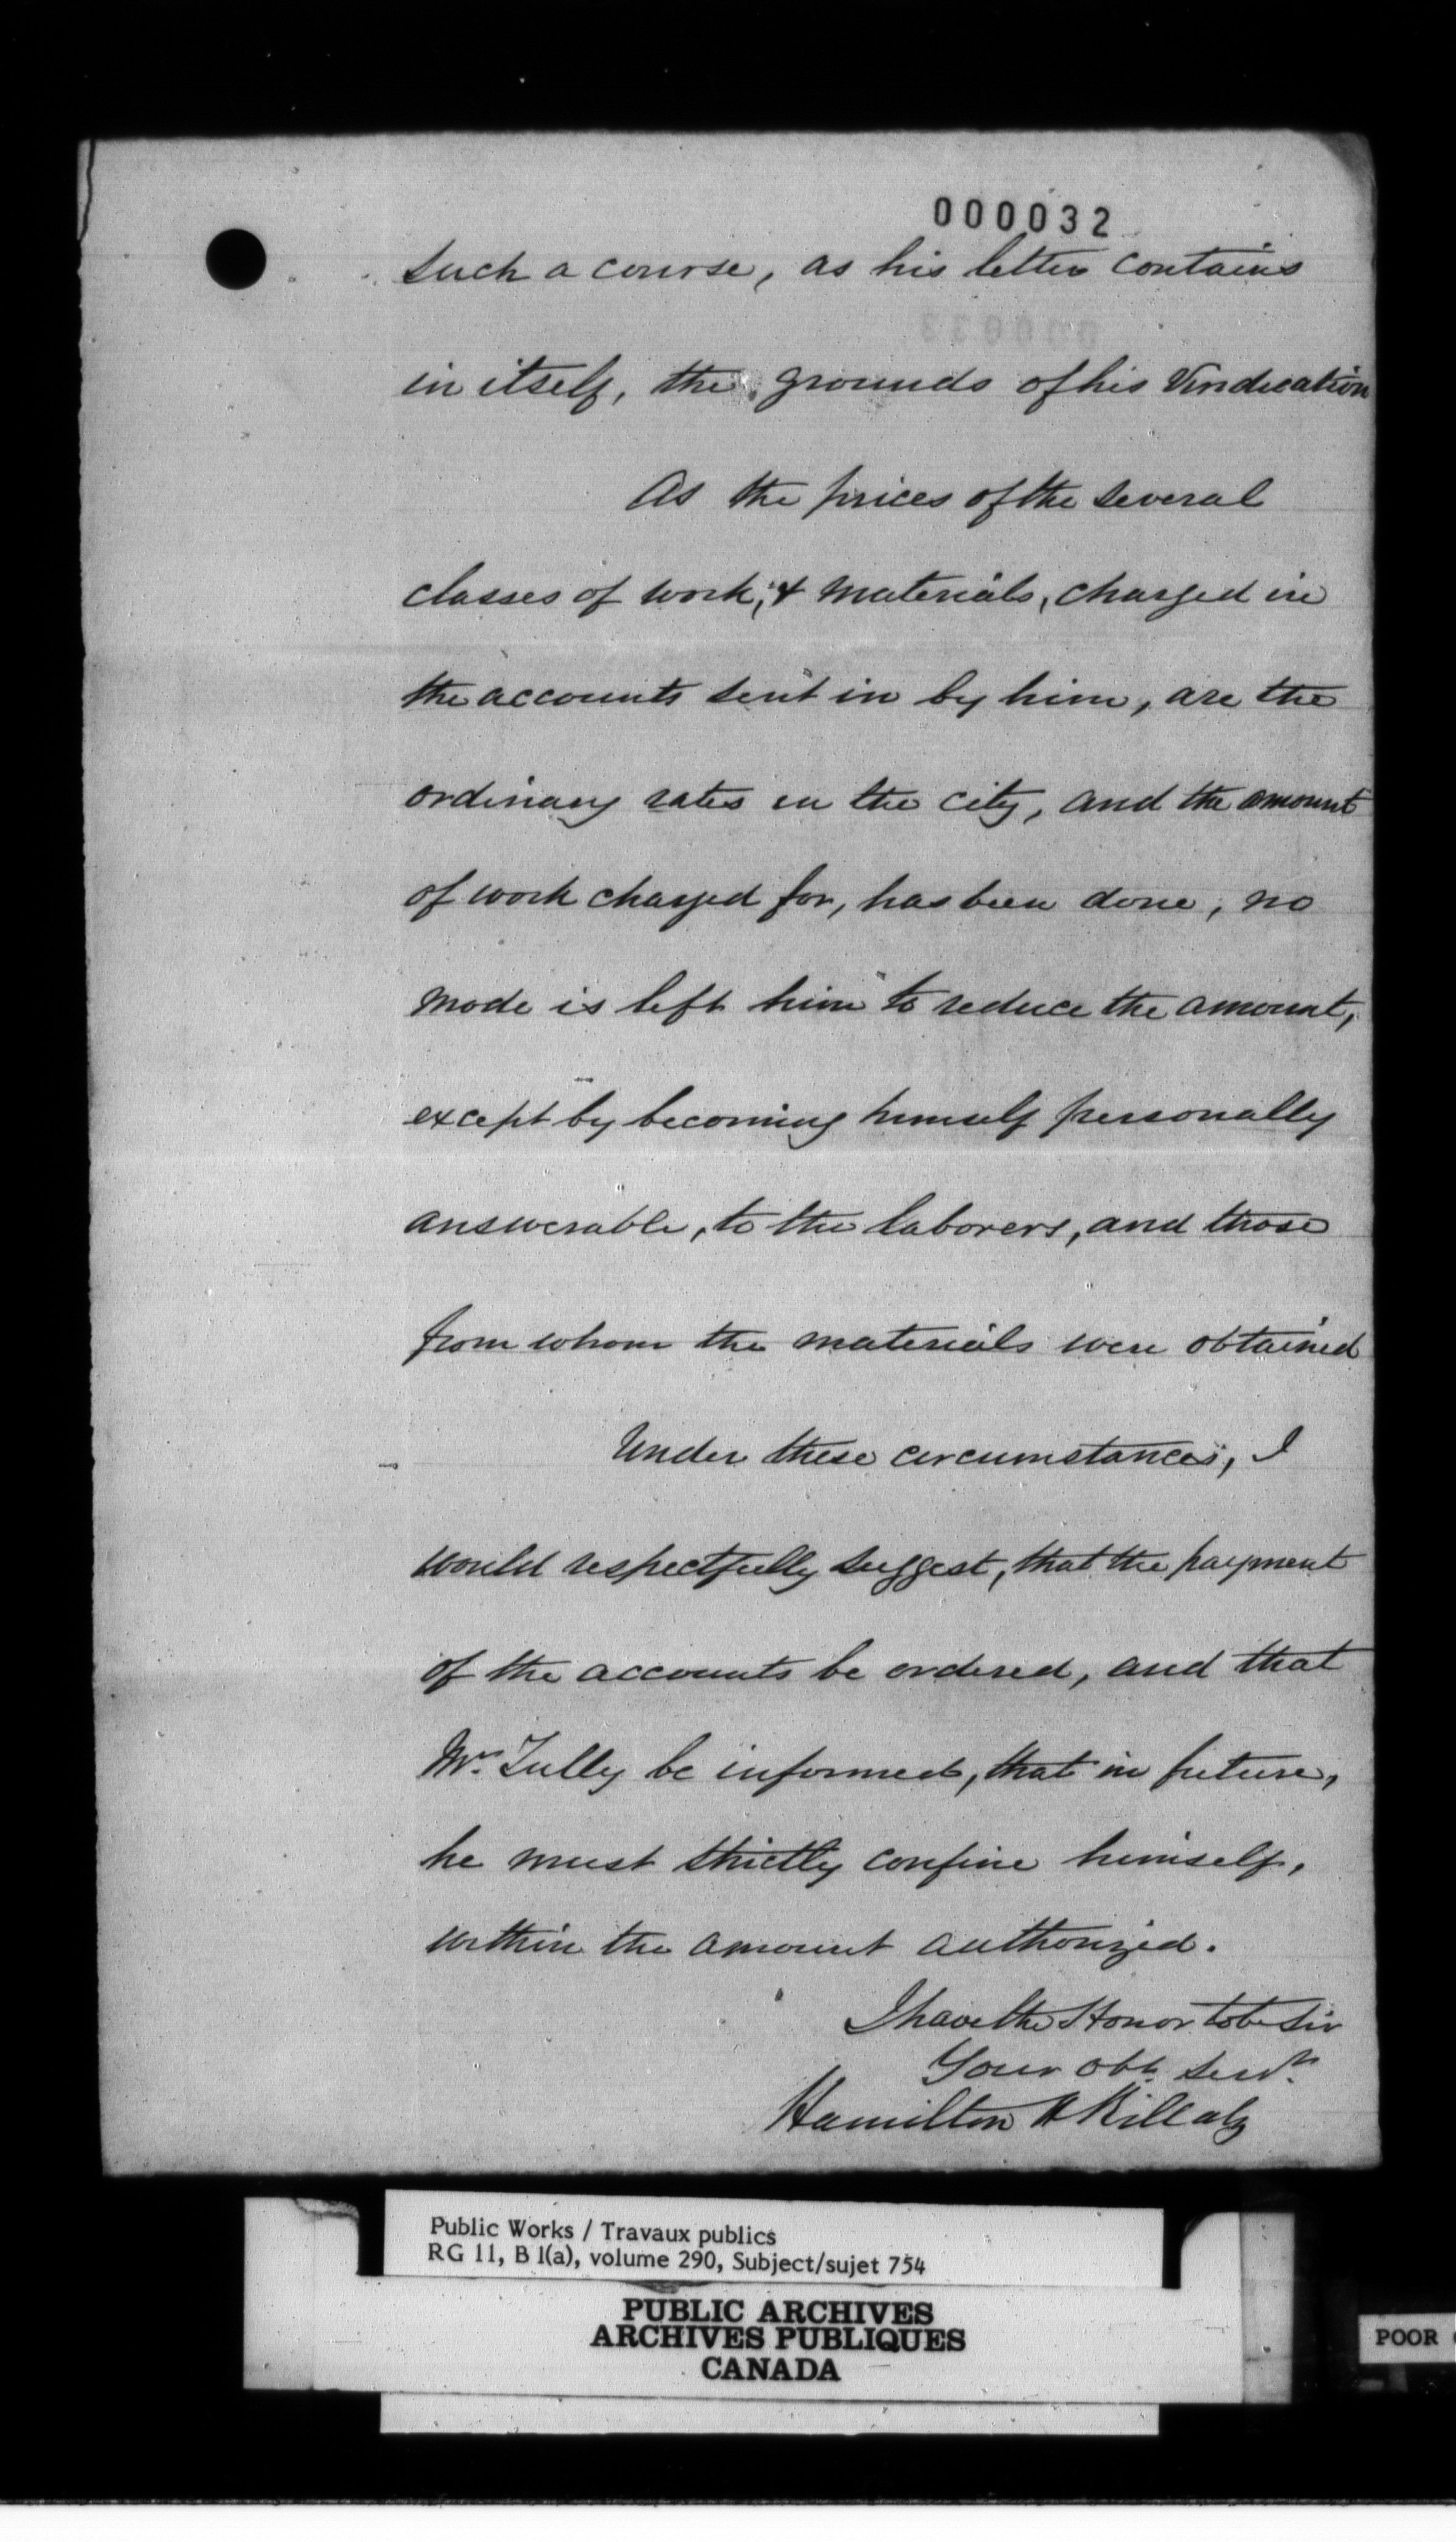 000032
such a course, as his letter contains
in itself, the grounds of his Vindication
As the prices of the several
classes of work, & materials, charged in
the accounts sent in by him, are the
ordinary rates in the city, and the amount
of work charged for, has been done, no
mode is left him to reduce the amount,
except by becoming himself personally
answerable, to the laborers, and those
from whom the materials were obtained
Under these circumstances, I
would respectfully suggest, that the payment
of the accounts be ordered, and that
Mr. Tully be informed, that in future,
he must strictly confine himself,
within the amount authorized.
I have the Honor to be Sir
Your obt. Servt.
Hamilton H Killaly
Public Works / Travaux publics
RG 11, B 1(a), volume 290, Subject/sujet 754
PUBLIC ARCHIVES
ARCHIVES PUBLIQUES
CANADA
POOR